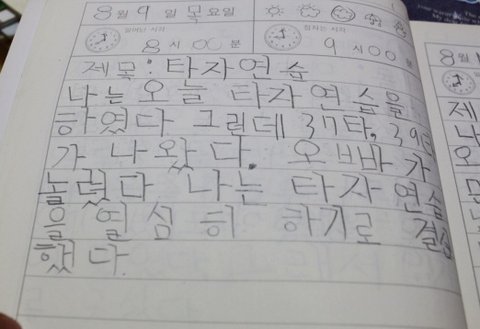 8월 9일 목요일
일어난 시각 8시 00분
잠자는 시각 9시 00분
제목: 타자연습
나는 오늘 타자연습을
하였다 그런데 37타, 39타
가 나왔다. 오빠가
놀렸다 나는 타자연습
을 열심히 하기로 결심
했다.
8월
제
나
오